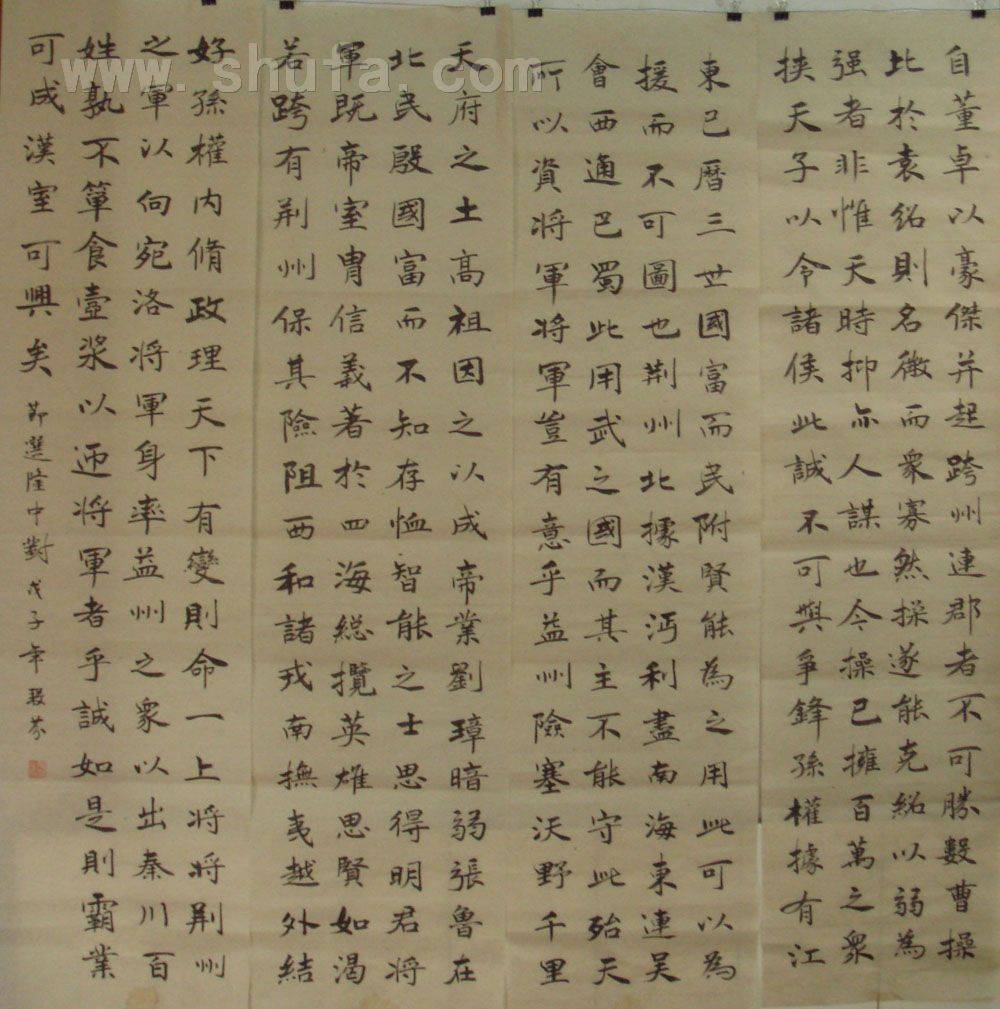 自董卓以豪傑并起跨州連郡者不可勝數曹操
比於袁紹則名微而衆寡然操遂能克紹以弱為
强者非惟天時抑亦人謀也今操已擁百萬之衆
挟天子以令諸侯此誠不可與爭鋒孫權據有江
東已曆三世國富而民附賢能為之用此可以為
援而不可圖也荆州北據漢沔利盡南海東連吴
會西通巴蜀此用武之國而其主不能守此殆天
所以資将軍将軍豈有意乎益州險塞沃野千里
天府之土高祖因之以成帝業劉璋暗弱張魯在
北民殷國富而不知存恤智能之士思得明君将
軍既帝室胄信義著於四海総攬英雄思賢如渴
若跨有荆州保其險阻西和諸戎南撫夷越外結
好孫權内脩政理天下有變則命一上将将荆州
之軍以向宛洛将軍身率益州之衆以出秦川百
姓孰不簞食壺漿以迊将軍者乎誠如是則霸業
可成漢室可興矣 節選隆中對 戊子年
www.shufa.com